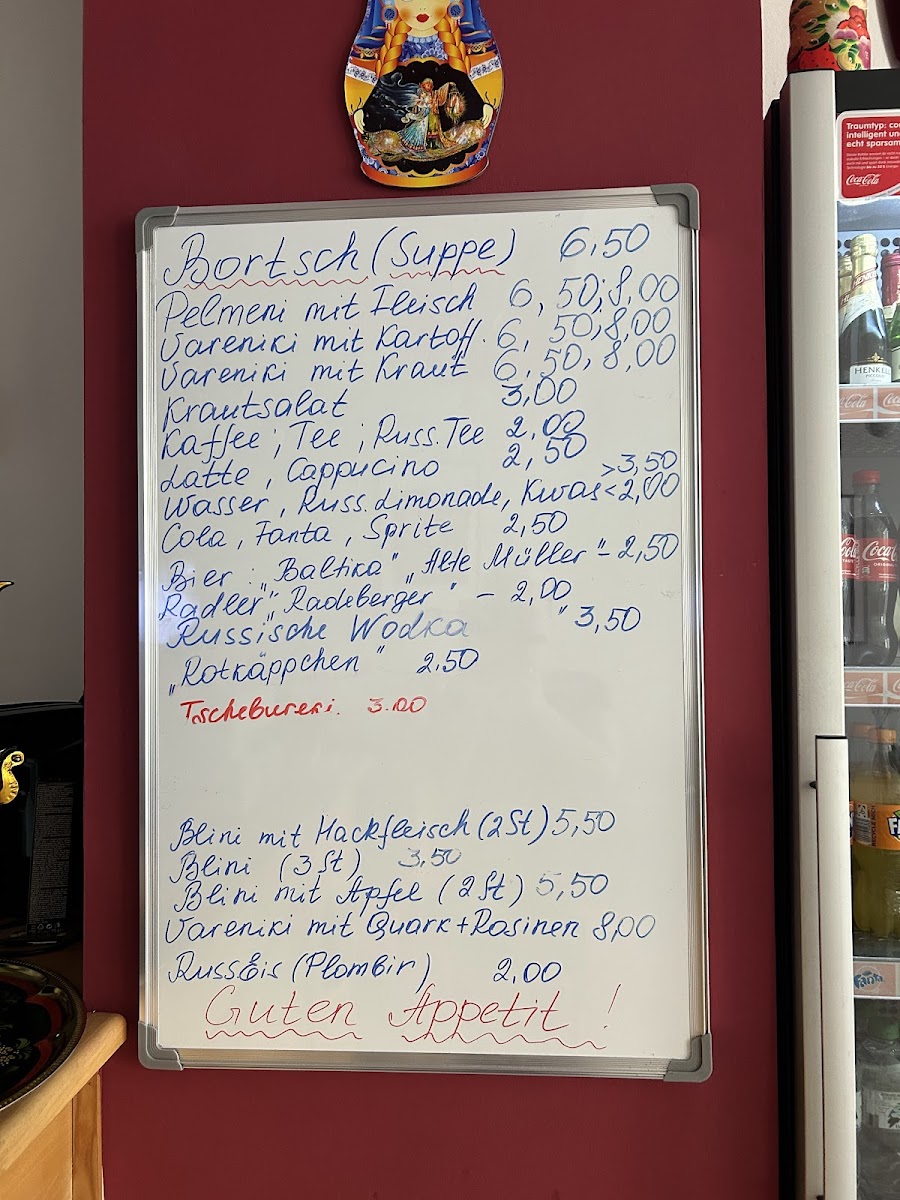 Bortsch (Suppe) 6,50
Pelmeni mit Fleisch 6,50; 8,00
Vareniki mit Kartoff. 6,50; 8,00
Vareniki mit Kraut 6,50; 8,00
Krautsalat 3,00
Kaffee; Tee; Russ. Tee 2,00
Latte, Cappucino 2,50
Wasser, Russ. Limonade, Kwas < 2,00 > 3,50
Cola, Fanta, Sprite 2,50
Bier: „Baltika" „Alte Müller" - 2,50
Radler „Radeberger" - 2,00
Russische Wodka " 3,50
„Rotkäppchen" 2,50
Tschebureki. 3.00
Blini mit Hackfleisch (2St) 5,50
Blini (3 St) 3,50
Blini mit Apfel (2St) 5,50
Vareniki mit Quark+Rosinen 8,00
Russ Eis (Plombir) 2,00
Guten Appetit !
Traumtyp: coo
intelligent un
echt sparsam
Coca-Cola
HENKEL
PICCOLO
Cola
Coca-Cola
Fanta